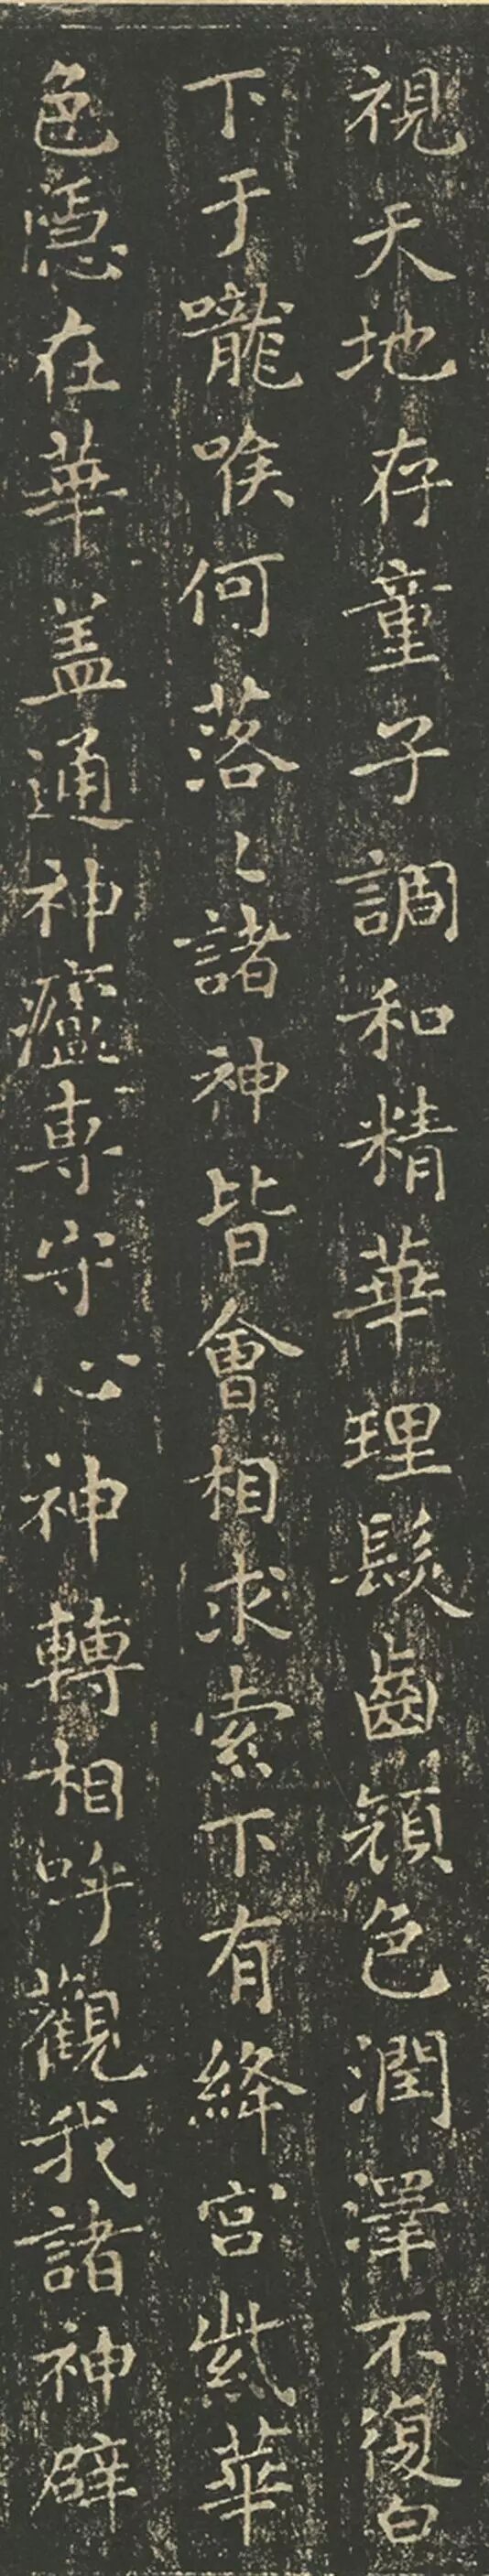 視天地存童子調和精華理髮齒顔色潤澤不復白
下于嚨喉何落〻諸神皆會相求索下有絳宮紫華
色隱在華盖通神廬専守心神轉相呼觀我諸神辟